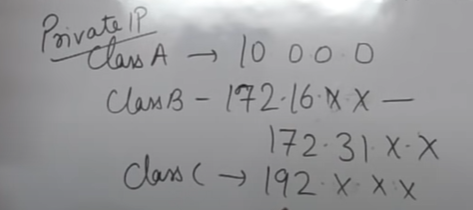 Private IP
Class A → 10 0.0.0
Class B - 172.16.x x —
172.31 x.x
Class C → 192.x.x.x